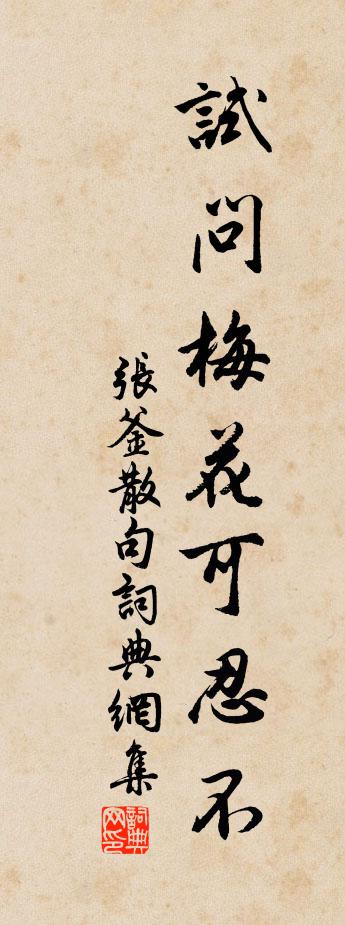 試問梅花可忍不
張釜散句詞典網集
詞典网印